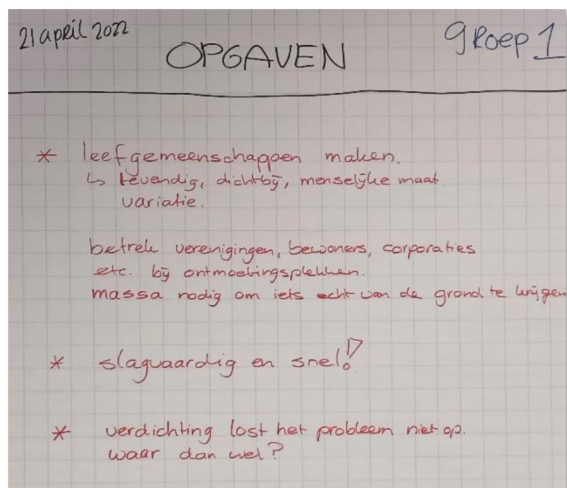 21 april 2022
OPGAVEN
groep 1
* leefgemeenschappen maken.
↳ levendig, dichtbij, menselijke maat
variatie.
betrek verenigingen, bewoners, corporaties
etc. bij ontmoetingsplekken.
massa nodig om iets echt van de grond te krijgen
* slagvaardig en snel!
* verdichting lost het probleem niet op.
waar dan wel?